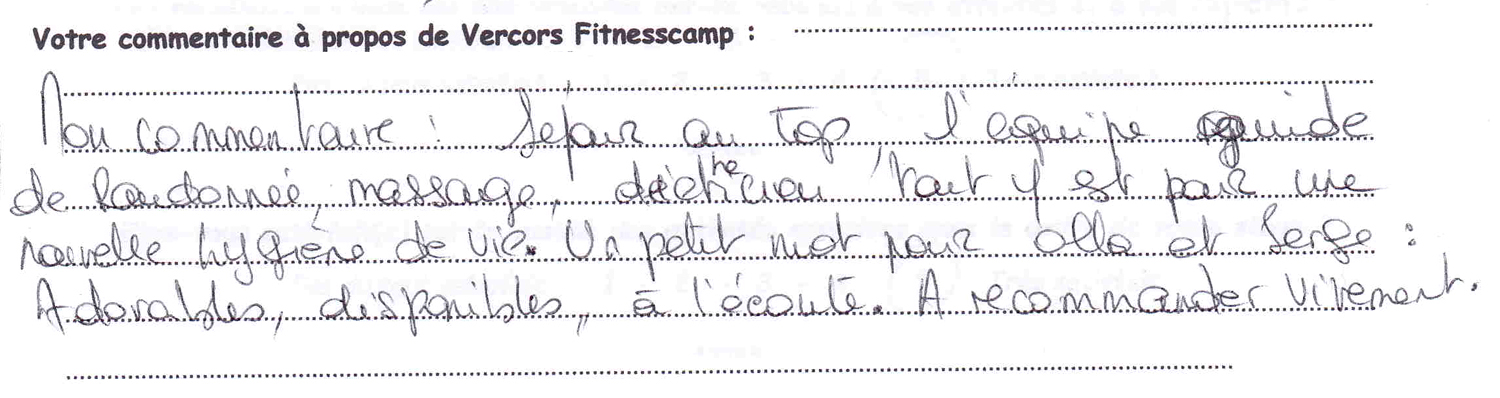 Votre commentaire à propos de Vercors Fitnesscamp :
Mon commentaire : Séjour au top, l'équipe guide
de Randonnée, massage, diététhicien tout y est pour une
nouvelle hygiène de vie. Un petit mot pour olla et Serge :
Adorables, disponibles, à l'écoute. A recommander vivement.